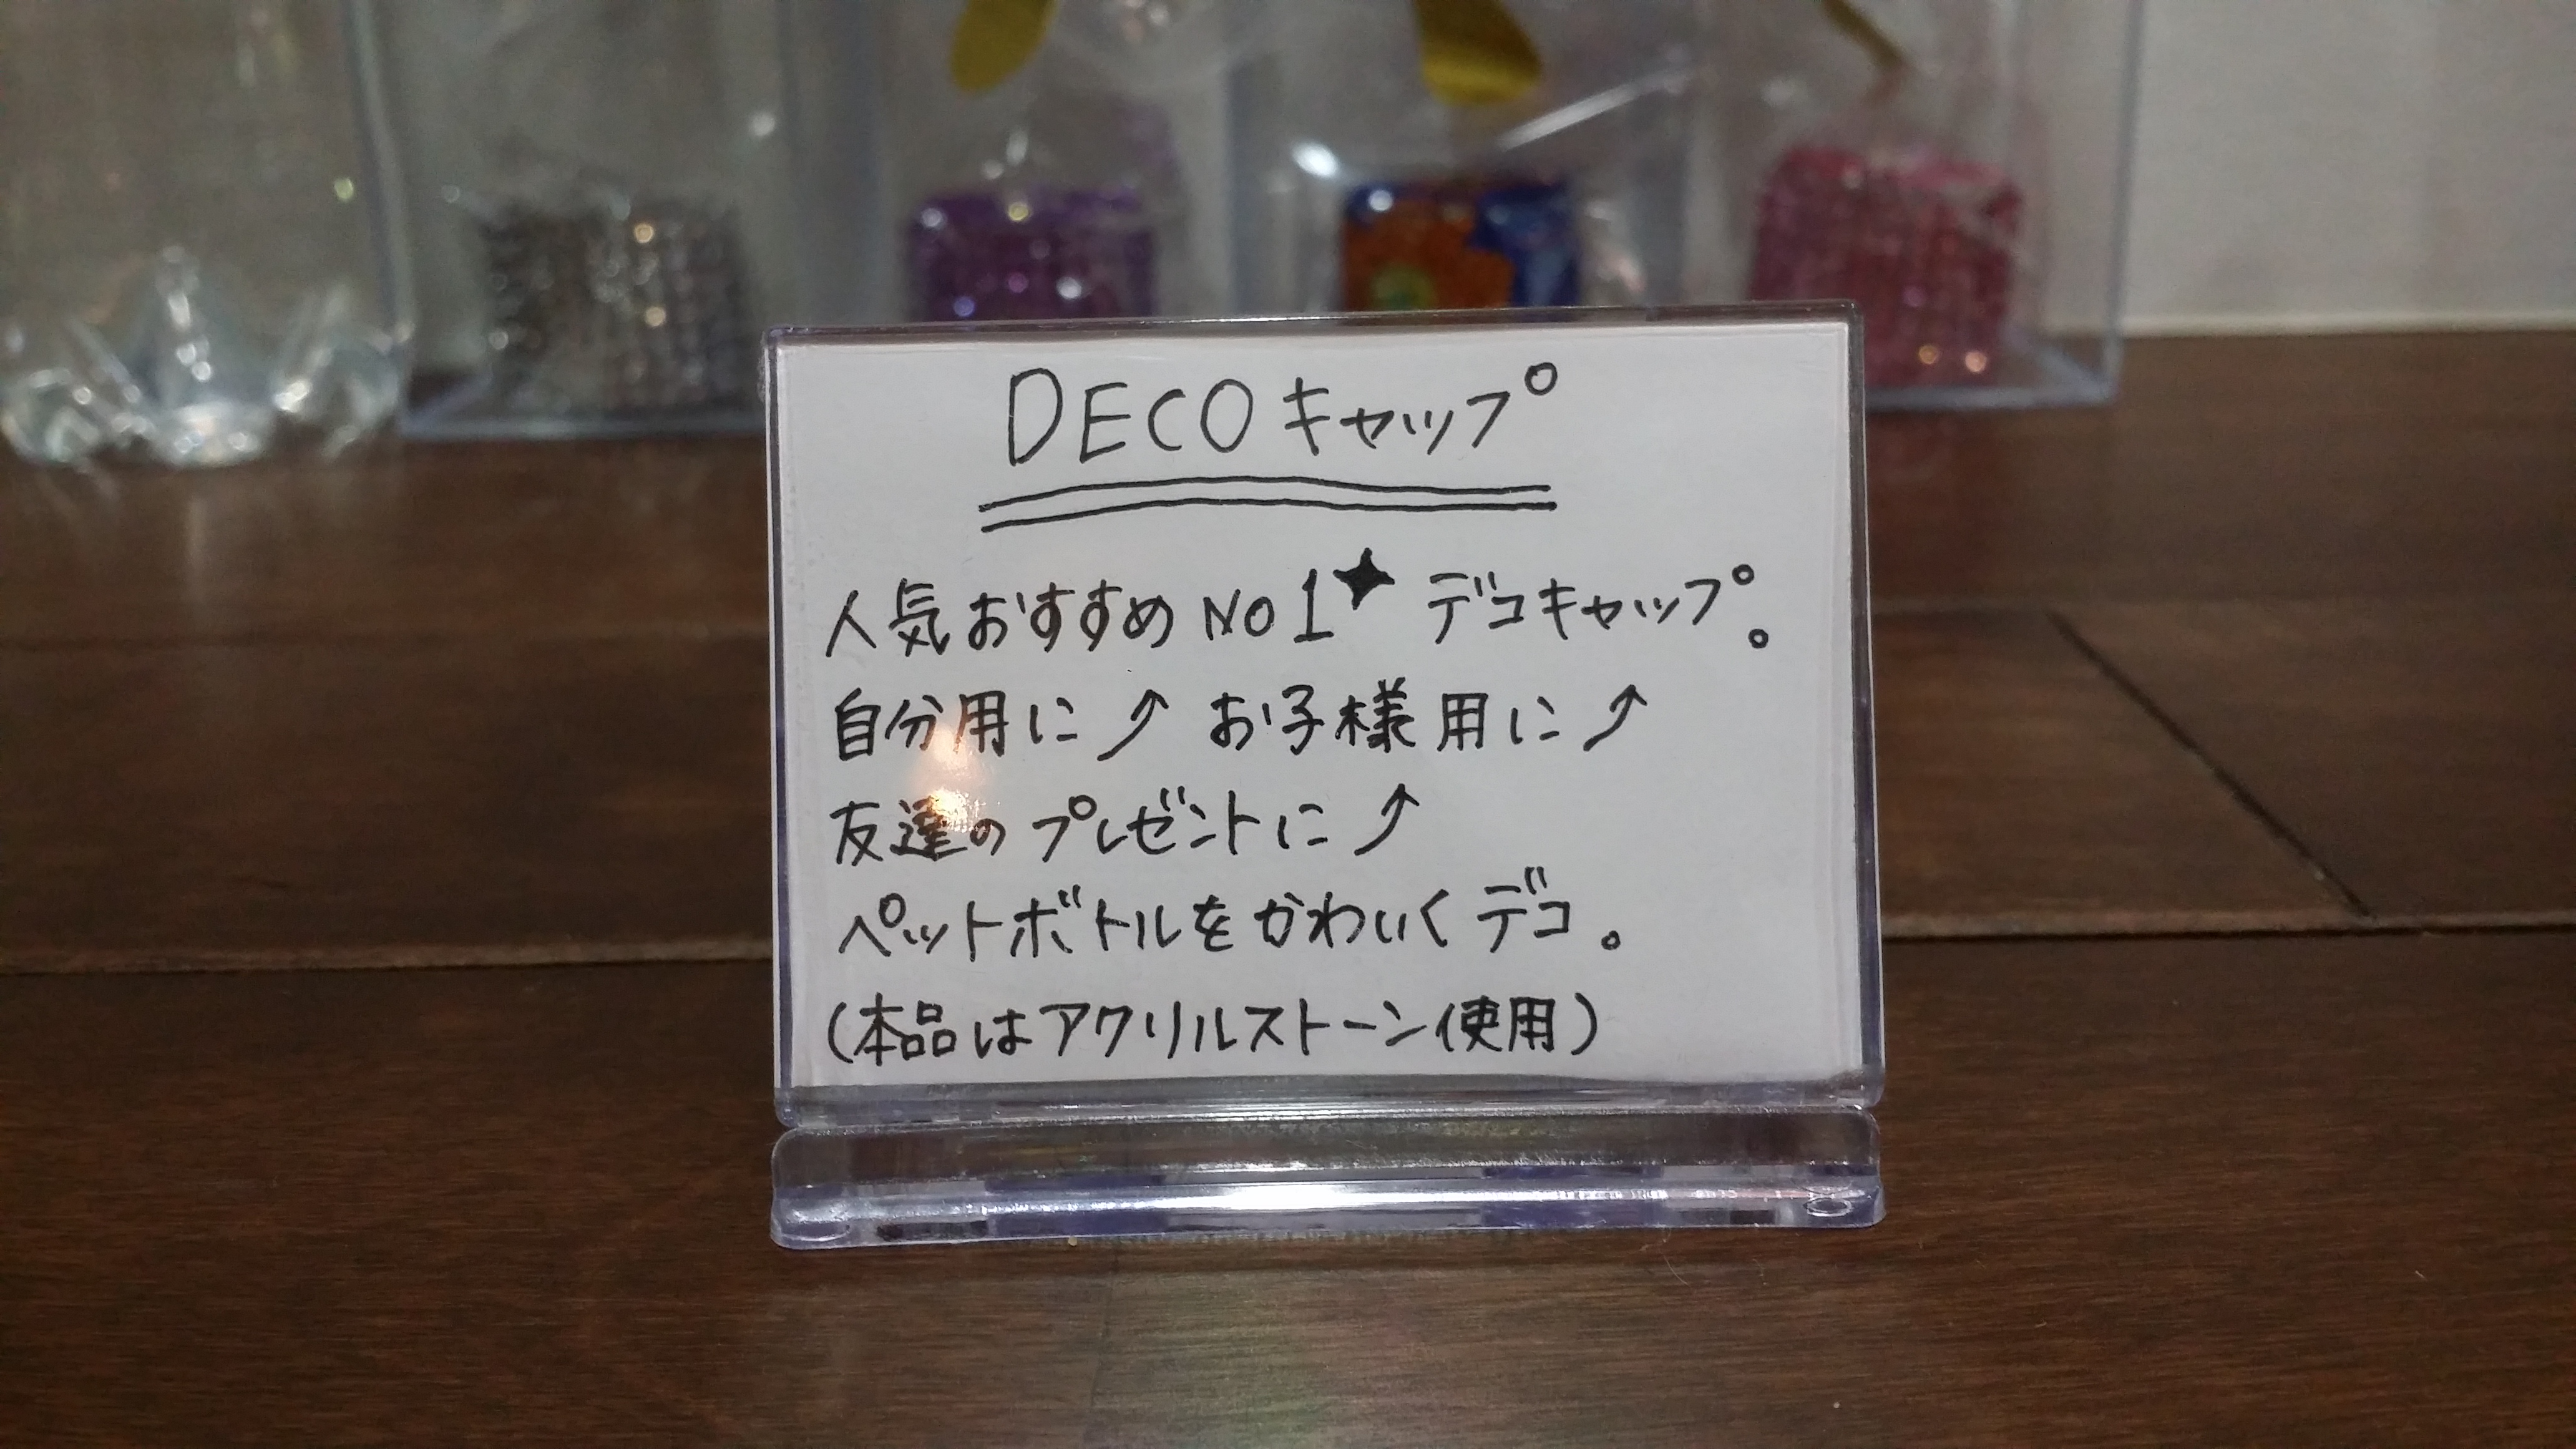 DECOキャップ
人気おすすめNO1✦ デコキャップ。
自分用に⤴ お子様用に⤴
友達のプレゼントに⤴
ペットボトルをかわいくデコ。
(本品はアクリルストーン使用)